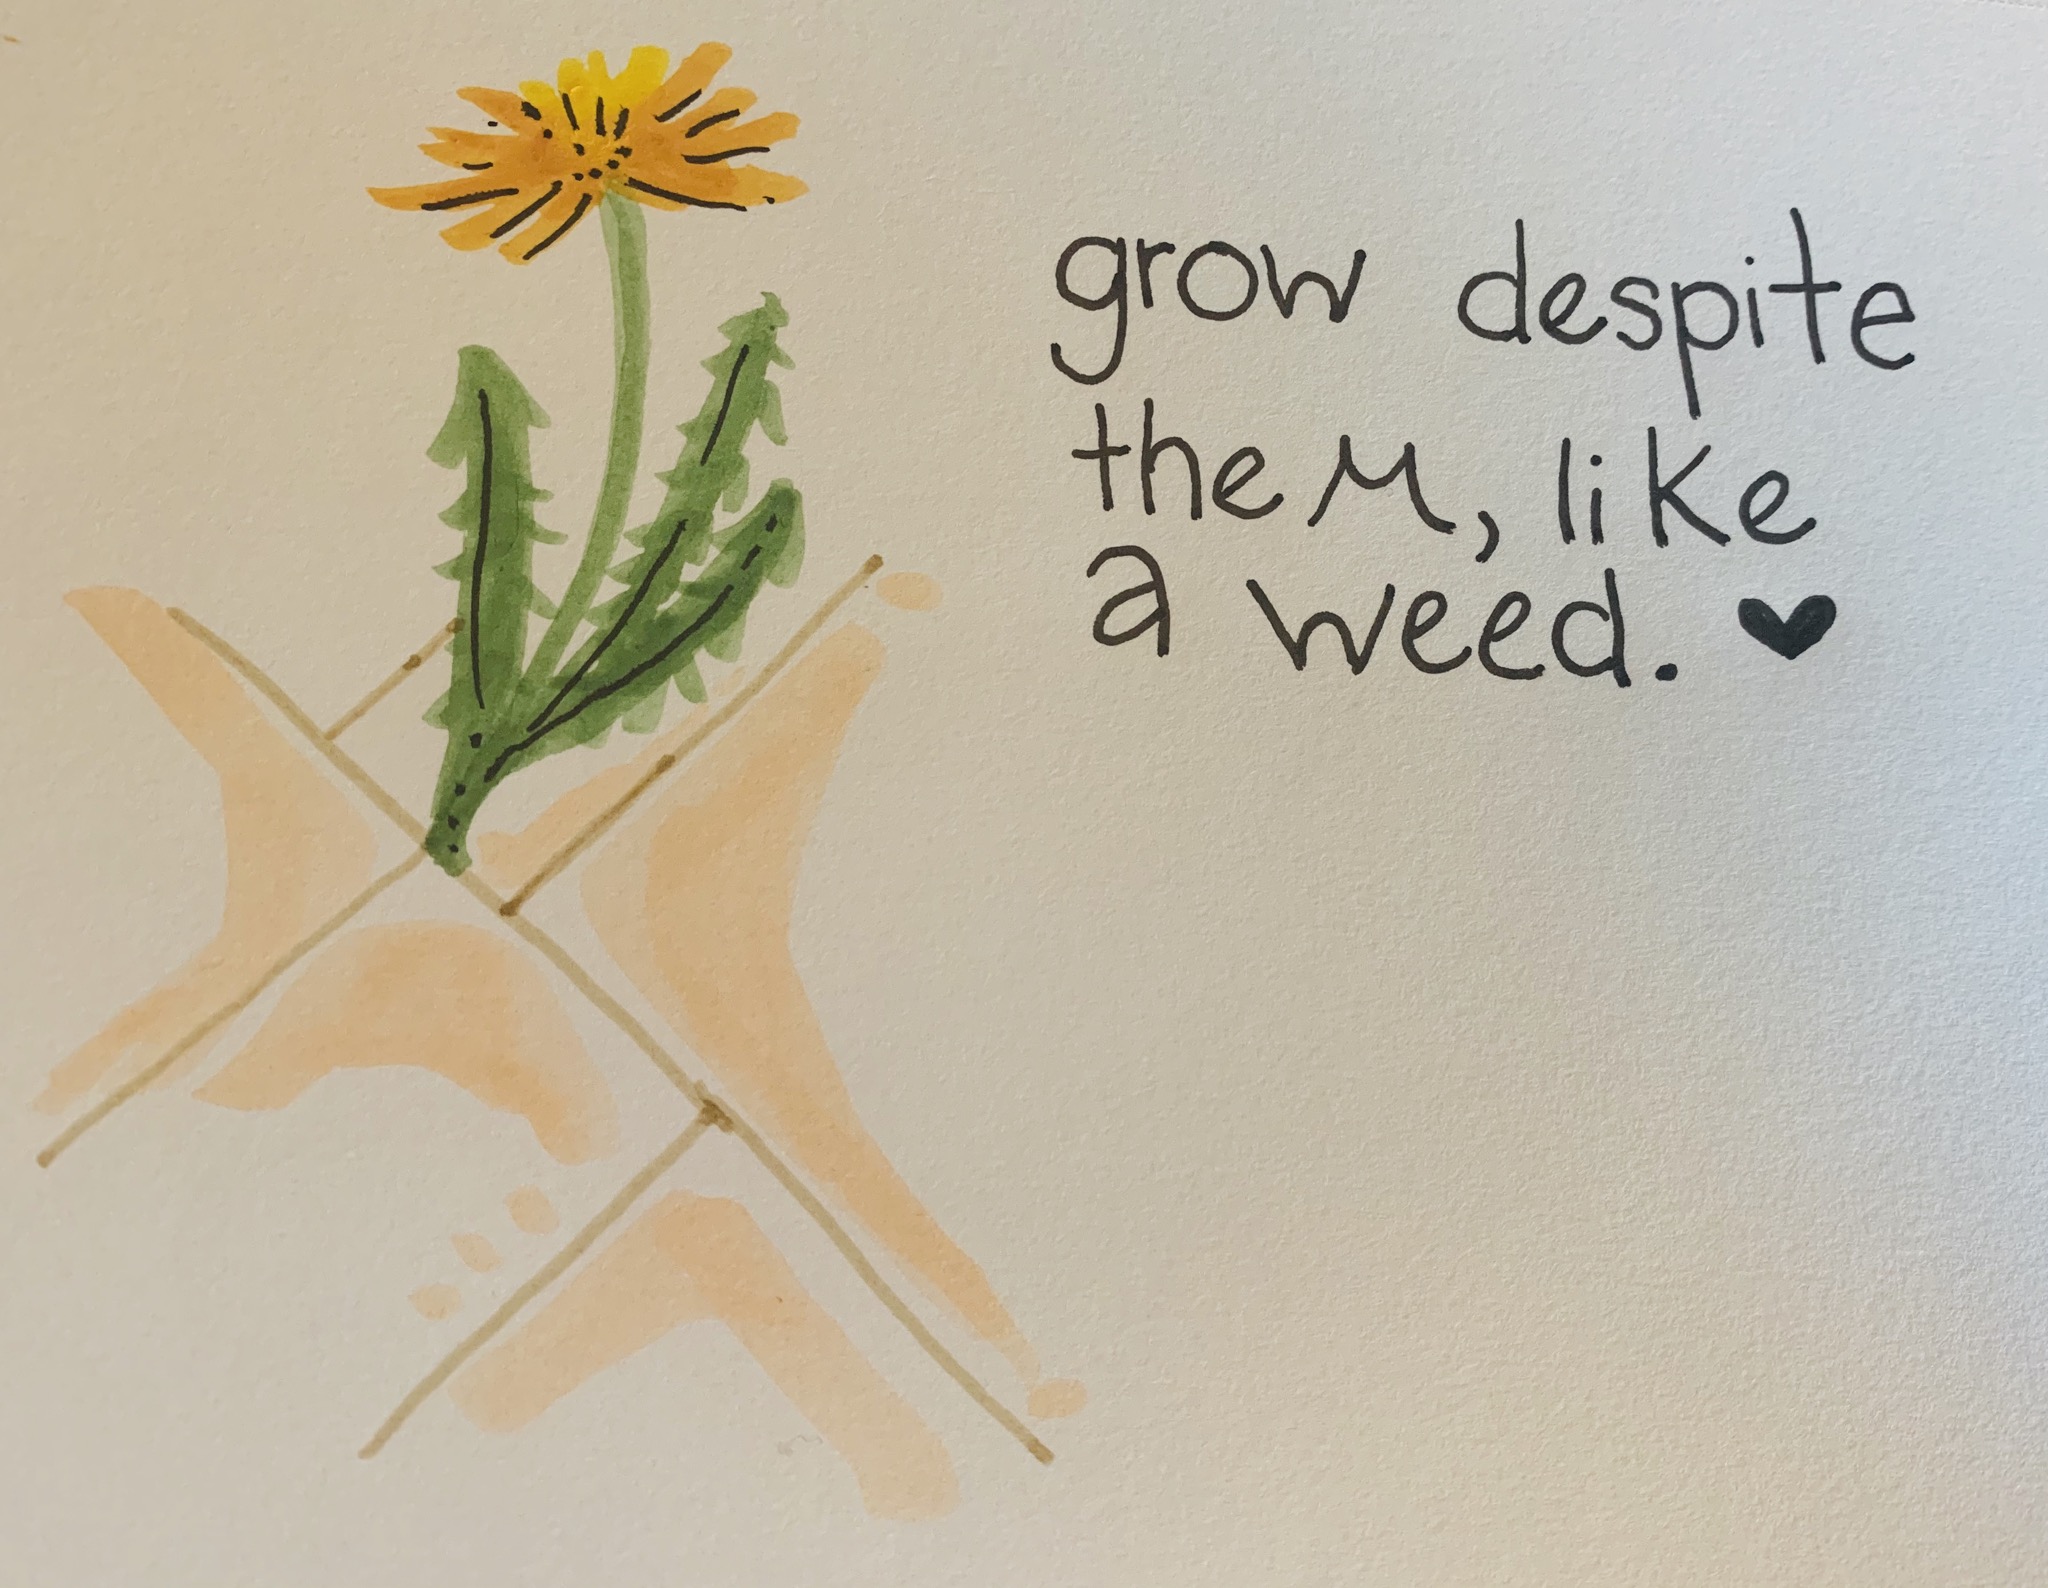 grow despite
them, like
a weed. ♥